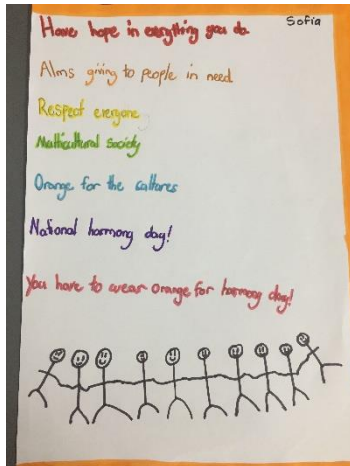 Sofia
Have hope in everything you do.
Alms giving to people in need
Respect everyone
Multicultural society
Orange for the cultures
National harmony day!
You have to wear orange for harmony day!